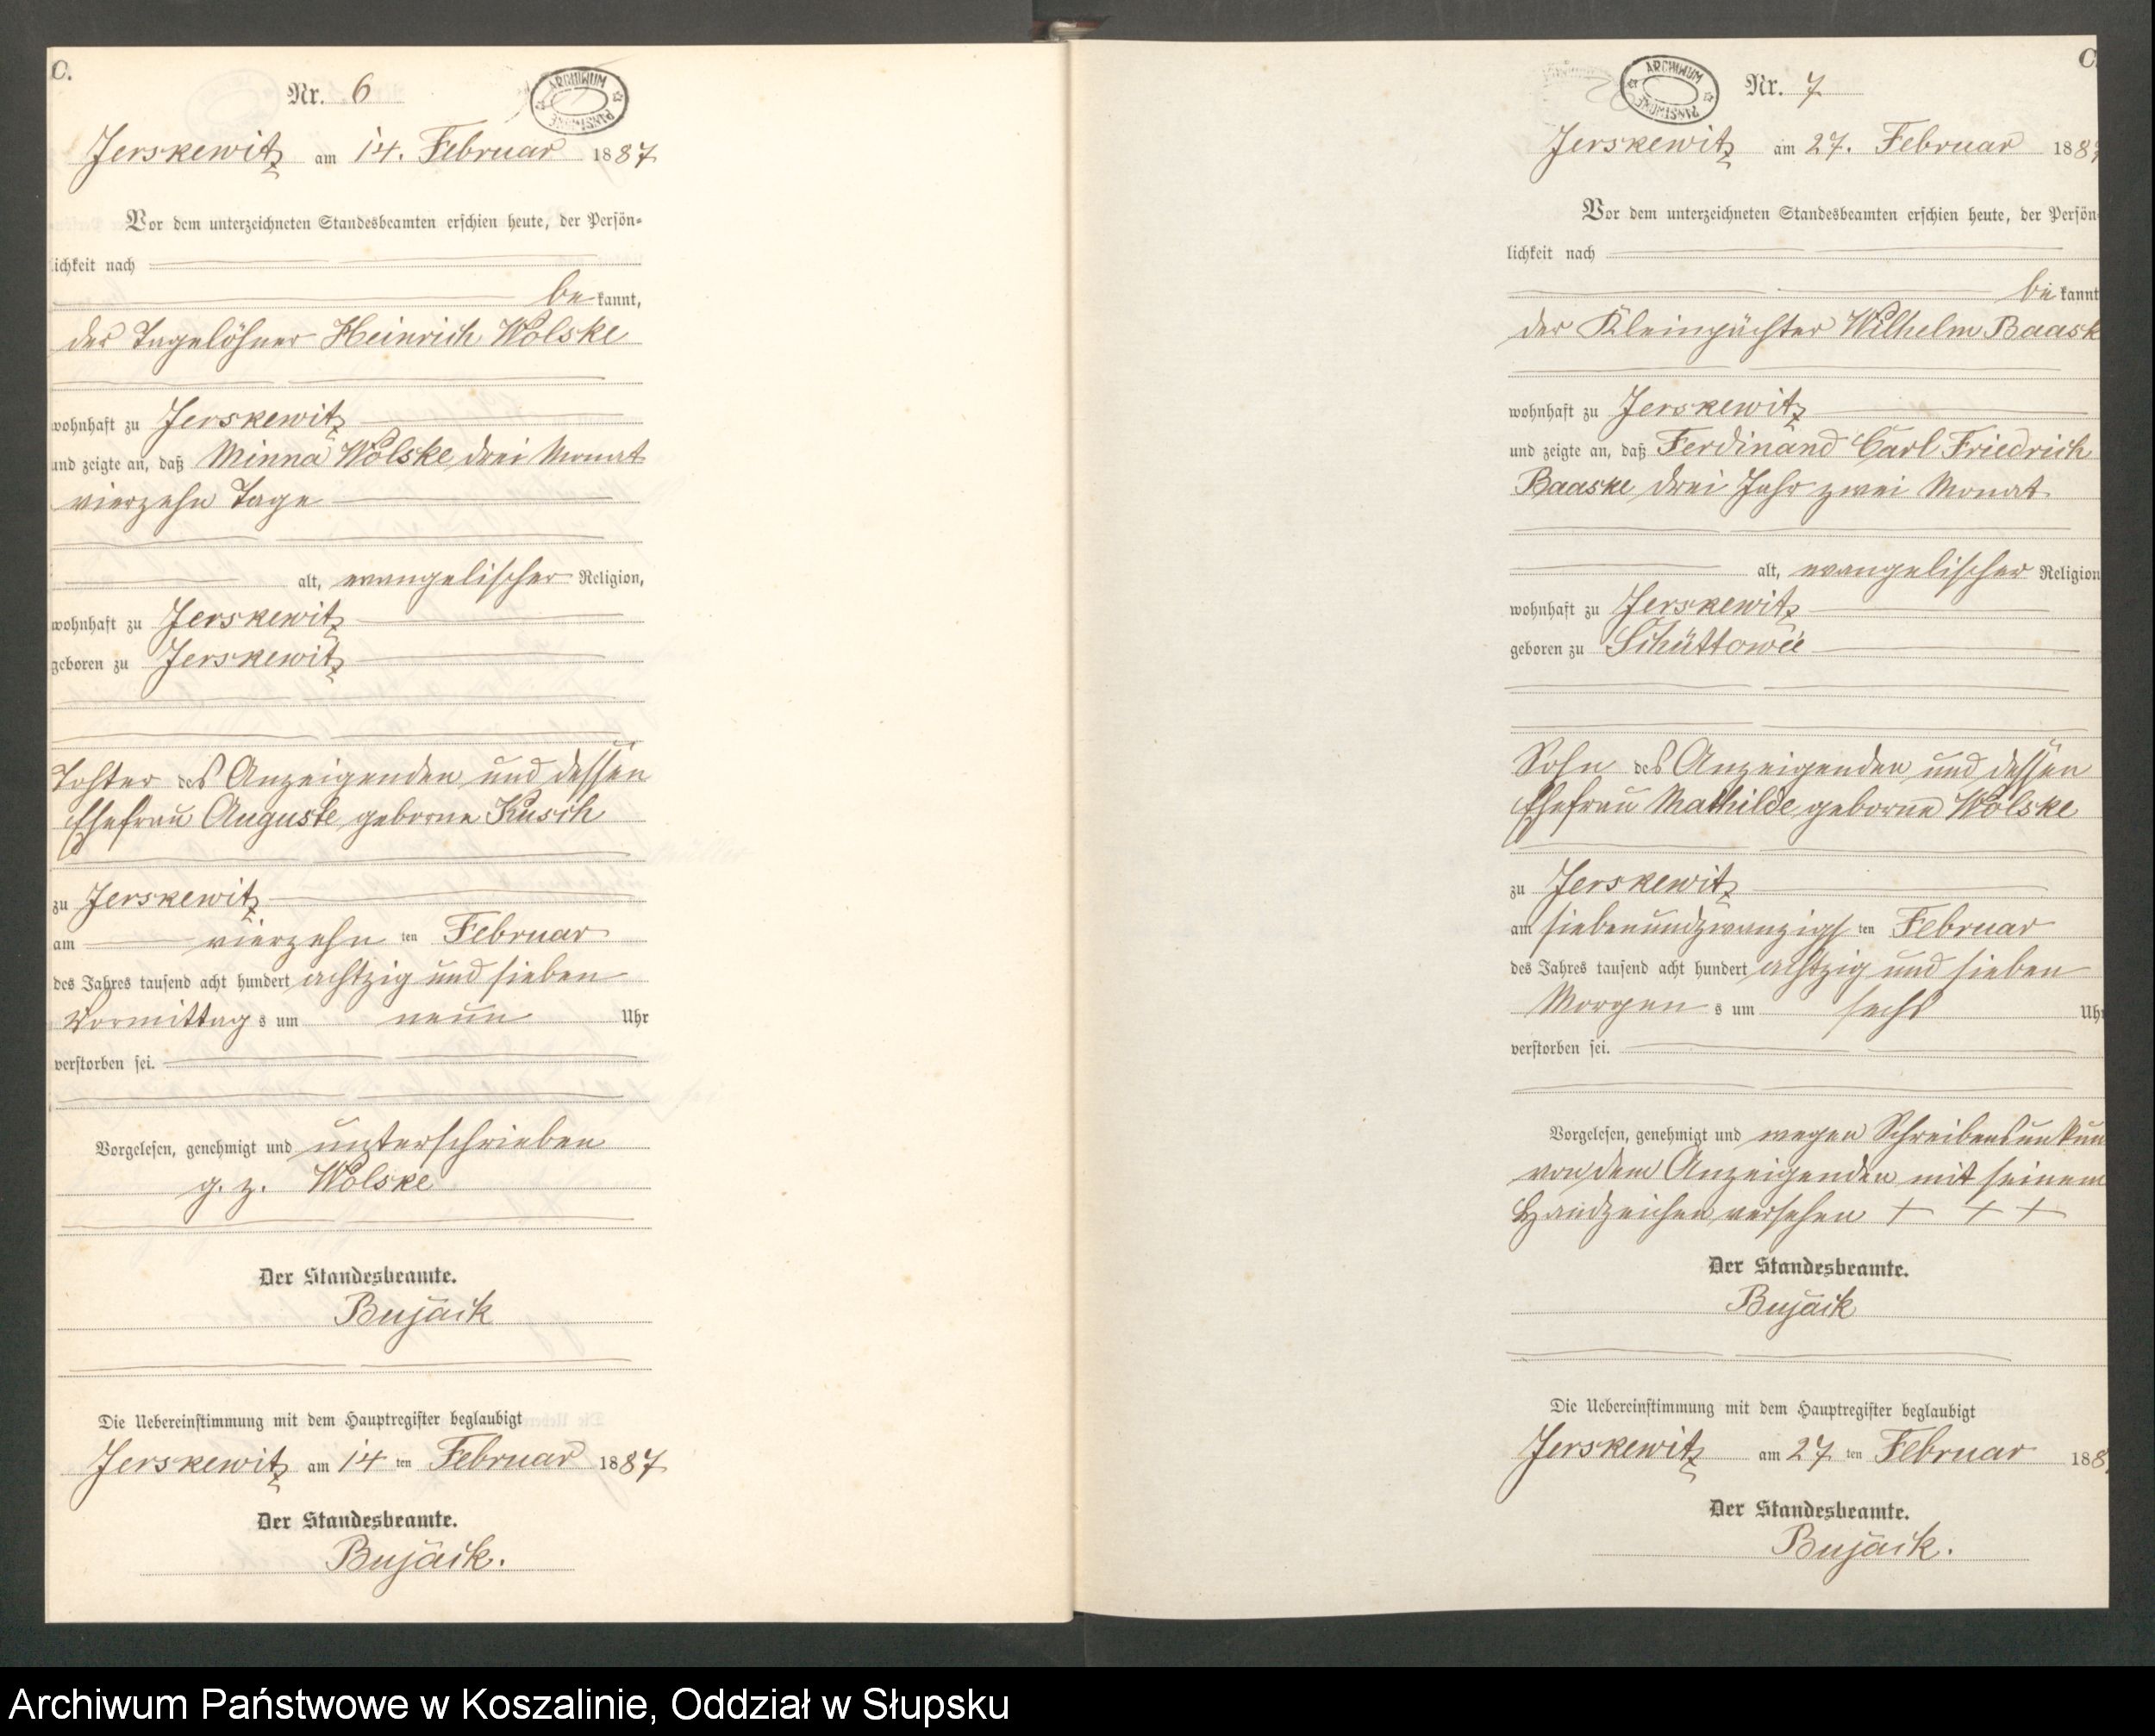 C.
Nr. 6
ARCHIWUM PAŃSTWOWE
Jerskewitz am 14. Februar 1887
Vor dem unterzeichneten Standesbeamten erschien heute, der Persön-
lichkeit nach
be kannt,
der Tagelöhner Heinrich Wolske
wohnhaft zu Jerskewitz
und zeigte an, daß Minna Wolske drei Monat
vierzehn Tage
alt, evangelischer Religion,
wohnhaft zu Jerskewitz
geboren zu Jerskewitz
Tochter des Anzeigenden und dessen
Ehefrau Auguste geborne Kusch
zu Jerskewitz
am vierzehn ten Februar
des Jahres tausend acht hundert achtzig und sieben
Vormittag s um neun Uhr
verstorben sei.
Vorgelesen, genehmigt und unterschrieben
g. z. Wolske
Der Standesbeamte.
Bujack
Die Uebereinstimmung mit dem Hauptregister beglaubigt
Jerskewitz am 14 ten Februar 1887
Der Standesbeamte.
Bujack.
C.
Nr. 7
ARCHIWUM PAŃSTWOWE
Jerskewitz am 27. Februar 1887
Vor dem unterzeichneten Standesbeamten erschien heute, der Persön
lichkeit nach
be kannt
der Kleinpächter Wilhelm Baask
wohnhaft zu Jerskewitz
und zeigte an, daß Ferdinand Carl Friedrich
Baaske drei Jahr zwei Monat
alt, evangelischer Religion
wohnhaft zu Jerskewitz
geboren zu
Sohn des Anzeigenden und dessen
Ehefrau Mathilde geborne Wolske
zu Jerskewitz
am siebenundzwanzigs ten Februar
des Jahres tausend acht hundert achtzig und sieben
Morgen s um sechs Uhr
verstorben sei.
Vorgelesen, genehmigt und wegen Schreibensunkun
von dem Anzeigenden mit seinem
Handzeichen versehen + + +
Der Standesbeamte.
Bujack
Die Uebereinstimmung mit dem Hauptregister beglaubigt
Jerskewitz am 27 ten Februar 188
Der Standesbeamte.
Bujack.
Archiwum Państwowe w Koszalinie, Oddział w Słupsku